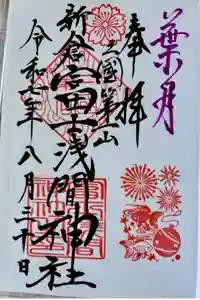 葉月
奉拝
三國第一山
新倉富士浅間神社
令和六年八月三十日